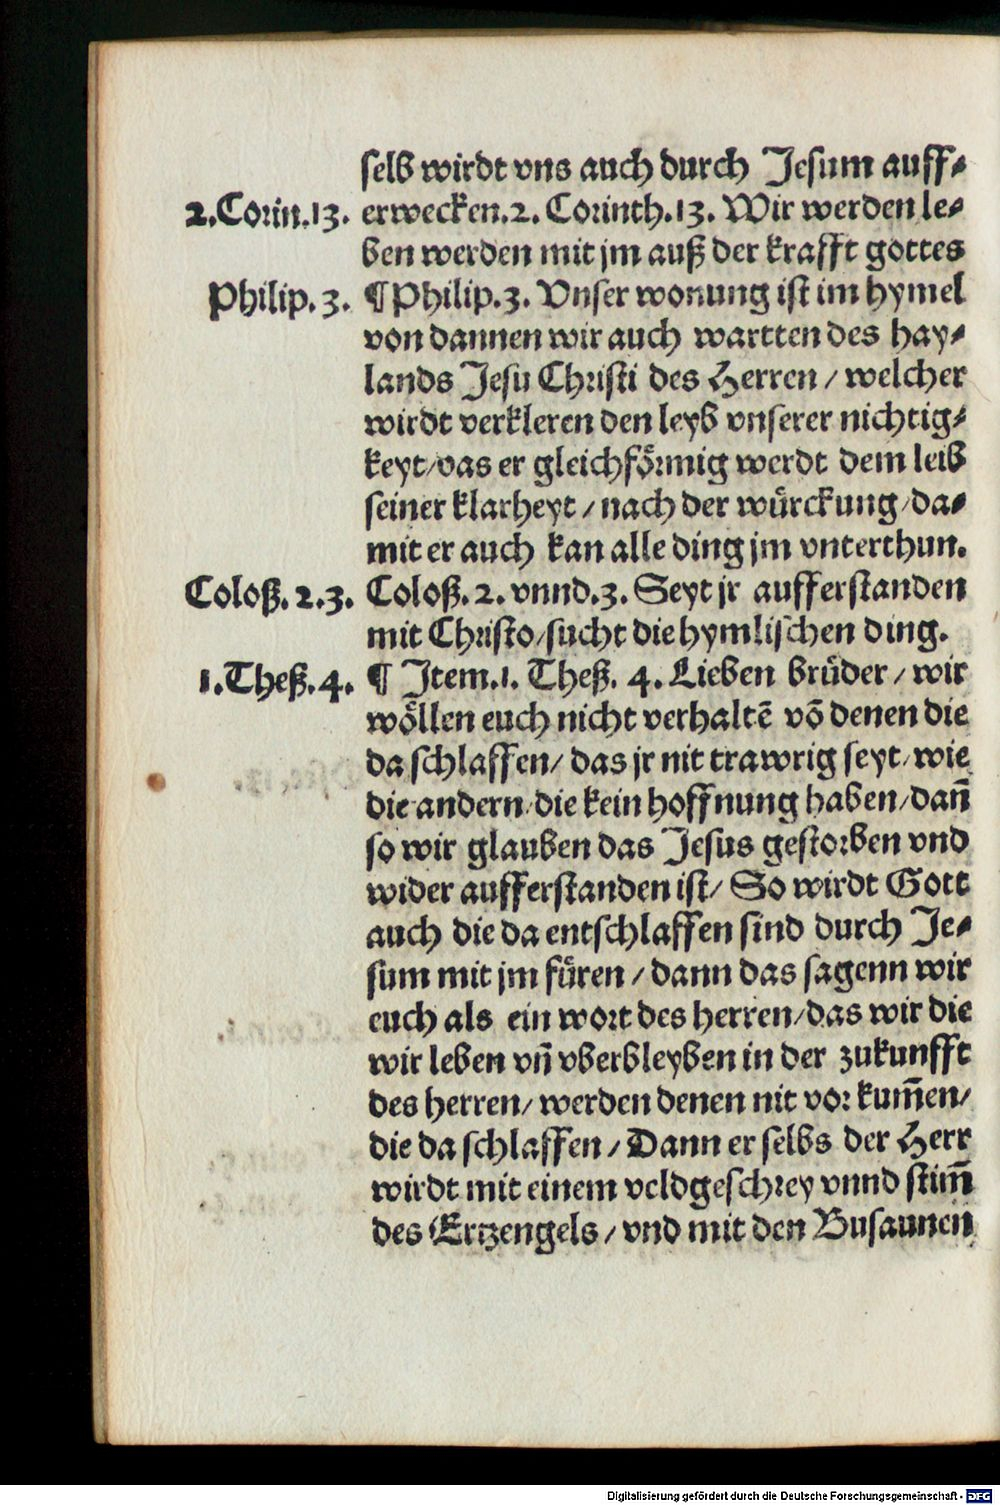 selb wirdt vns auch durch Jesum auff⸗
2.Corin.13. erwecken.2. Corinth.13. Wir werden le⸗
ben werden mit jm auß der krafft gottes
Philip.3. ¶Philip.3. Vnser wonung ist im hymel
von dannen wir auch wartten des hay⸗
lands Jesu Christi des Herren / welcher
wirdt verkleren den leyb vnserer nichtig⸗
keyt/vas er gleichfoͤrmig werdt dem leib
seiner klarheyt / nach der wuͤrckung/da⸗
mit er auch kan alle ding jm vnterthun.
Coloß.2.3. Coloß.2. vnnd.3. Seyt jr aufferstanden
mit Christo/sucht die hymlischen ding.
1.Theß.4. ¶ Item.1. Theß. 4. Lieben bruͤder / wir
woͤllen euch nicht verhaltē vō denen die
da schlaffen/ das jr nit trawrig seyt/wie
die andern/die kein hoffnung haben/dañ
so wir glauben das Jesus gestorben vnd
wider aufferstanden ist/ So wirdt Gott
auch die da entschlaffen sind durch Je⸗
sum mit jm fuͤren / dann das sagenn wir
euch als ein wort des herren/das wir die
wir leben vñ vberbleyben in der zukunfft
des herren/ werden denen nit vor kum̄en/
die da schlaffen / Dann er selbs der Herr
wirdt mit einem veldgeschrey vnnd stim̄
des Ertzengels / vnd mit den Busaunen
Digitalisierung gefördert durch die Deutsche Forschungsgemeinschaft - DFG